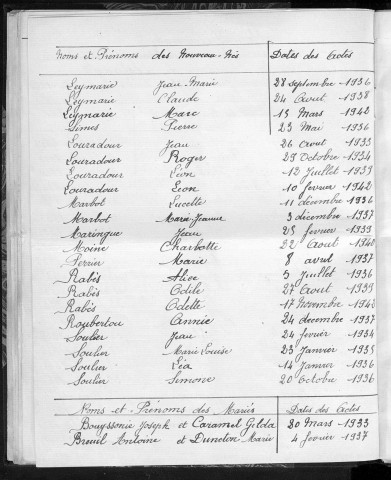 Noms et Prénoms des Nouveau-Nés Dates des Actes
Leymarie Jean-Marie 28 septembre - 1936
Leymarie Claude 24 Aout - 1938
Leymarie Marc 15 Mars - 1942
Simes Pierre 23 Mai - 1936
Louradour Jean 26 Aout - 1933
Louradour Roger 29 Octobre - 1934
Louradour Léon 12 Juillet - 1939
Louradour Léon 10 fevrier - 1942
Marbot Lucette 11 décembre - 1936
Marbot Marie-Jeanne 3 décembre - 1937
Maringue Jean 25 fevrier - 1939
Moine Charlotte 22 Aout - 1940
Perrier Marie 8 avril - 1937
Rabès Alice 5 Juillet - 1936
Rabès Odile 27 Aout - 1939
Rabès Odette 17 Novembre - 1940
Roubertou Annie 24 decembre - 1937
Soulier Jean 24 fevrier - 1934
Soulier Marie Louise 23 Janvier - 1935
Soulier Léa 14 Janvier - 1936
Soulier Simone 20 Octobre - 1936
Noms et Prénoms des Mariés Dates des Actes
Bouyssonie Joseph et Caramel Gilda 30 Mars - 1933
Breuil Antoine et Dunclen Marie 4 fevrier - 1937